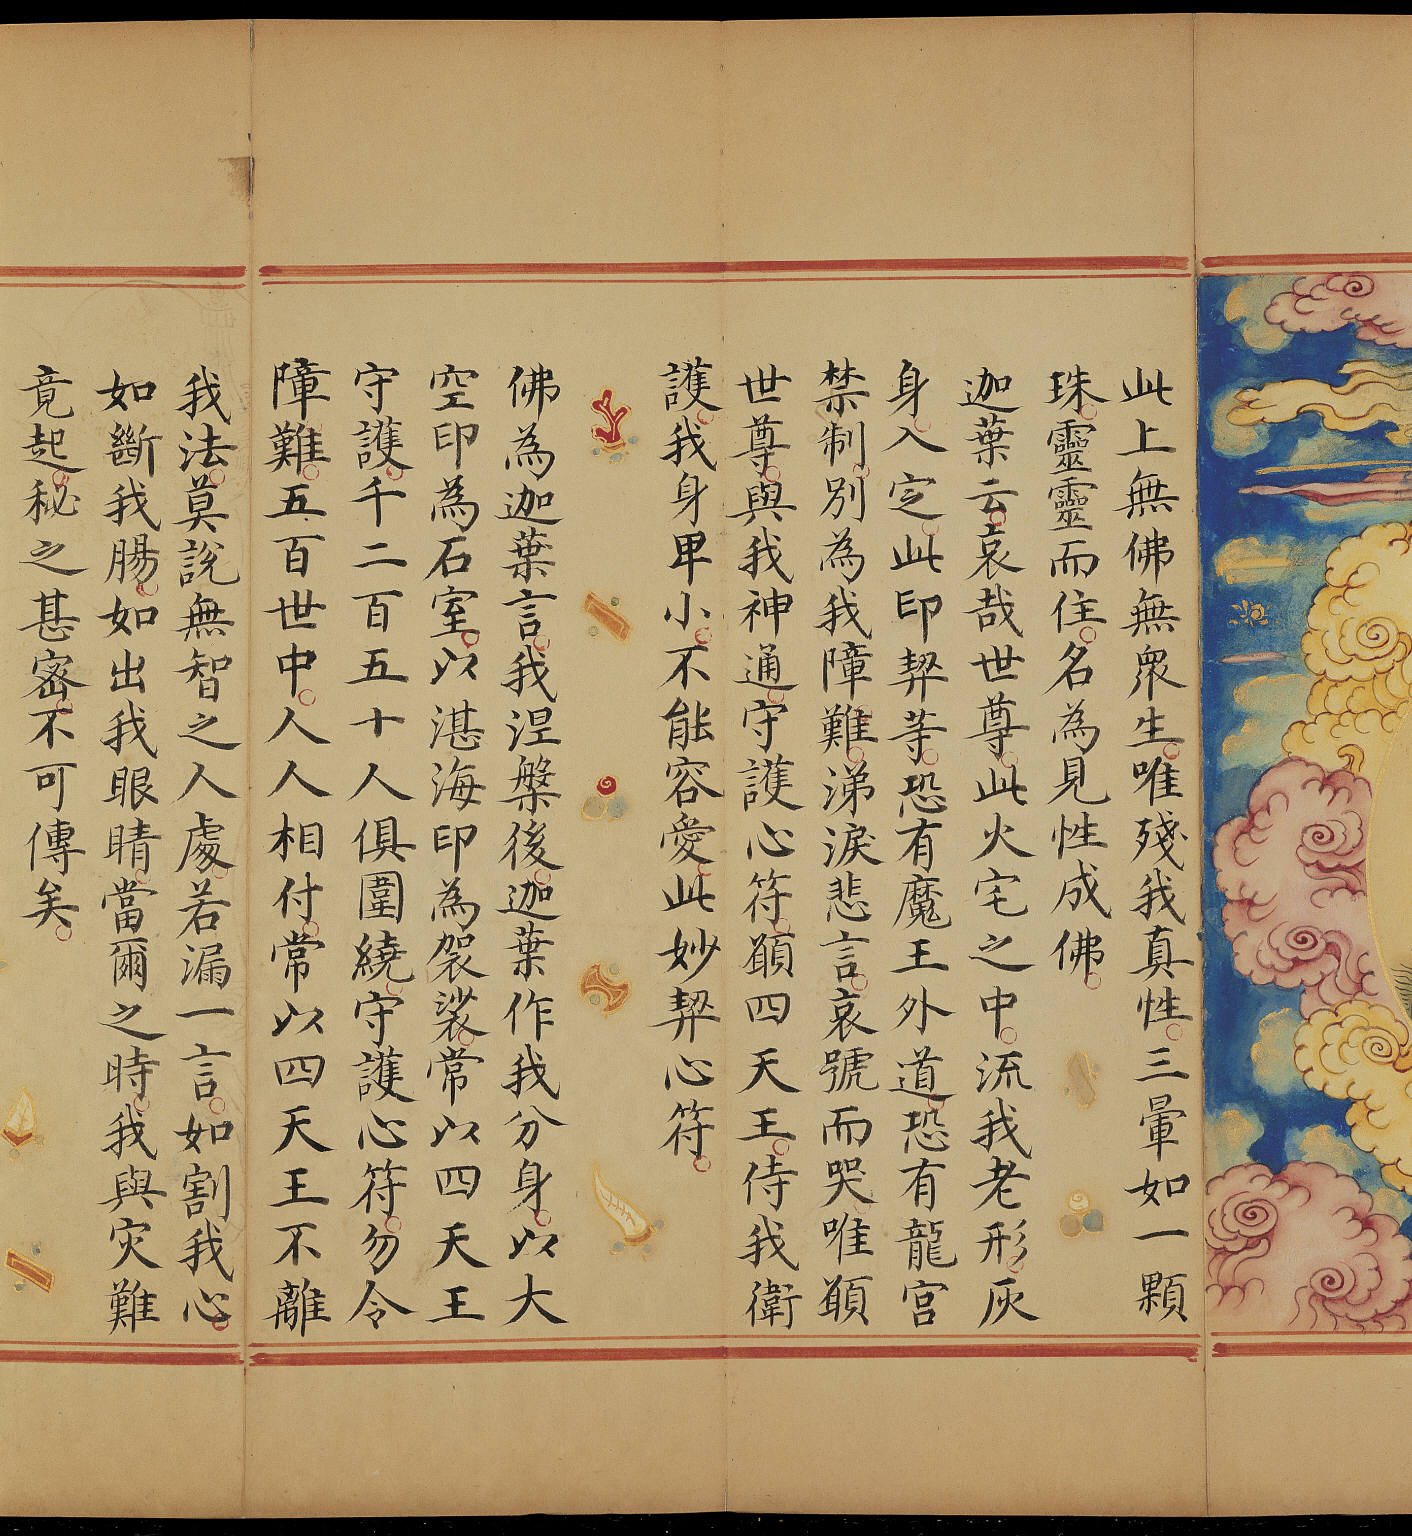 此上無佛無衆生唯殘我真性三暈如一顆
珠靈靈而住名為見性成佛
迦葉云哀哉世尊此火宅之中流我老形灰
身入定此印契等恐有魔王外道恐有龍宮
禁制別為我障難涕淚悲言哀號而哭唯願
世尊與我神通守護心符願四天王侍我衛
護我身卑小不能容愛此妙契心符
佛為迦葉言我涅槃後迦葉作我分身以大
空印為石室以湛海印為袈裟常以四天王
守護千二百五十人俱圍繞守護心符勿令
障難五百世中人人相付常以四天王不離
我法莫說無智之人處若漏一言如割我心
如斷我腸如出我眼睛當爾之時我與災難
竟起秘之甚密不可傳矣